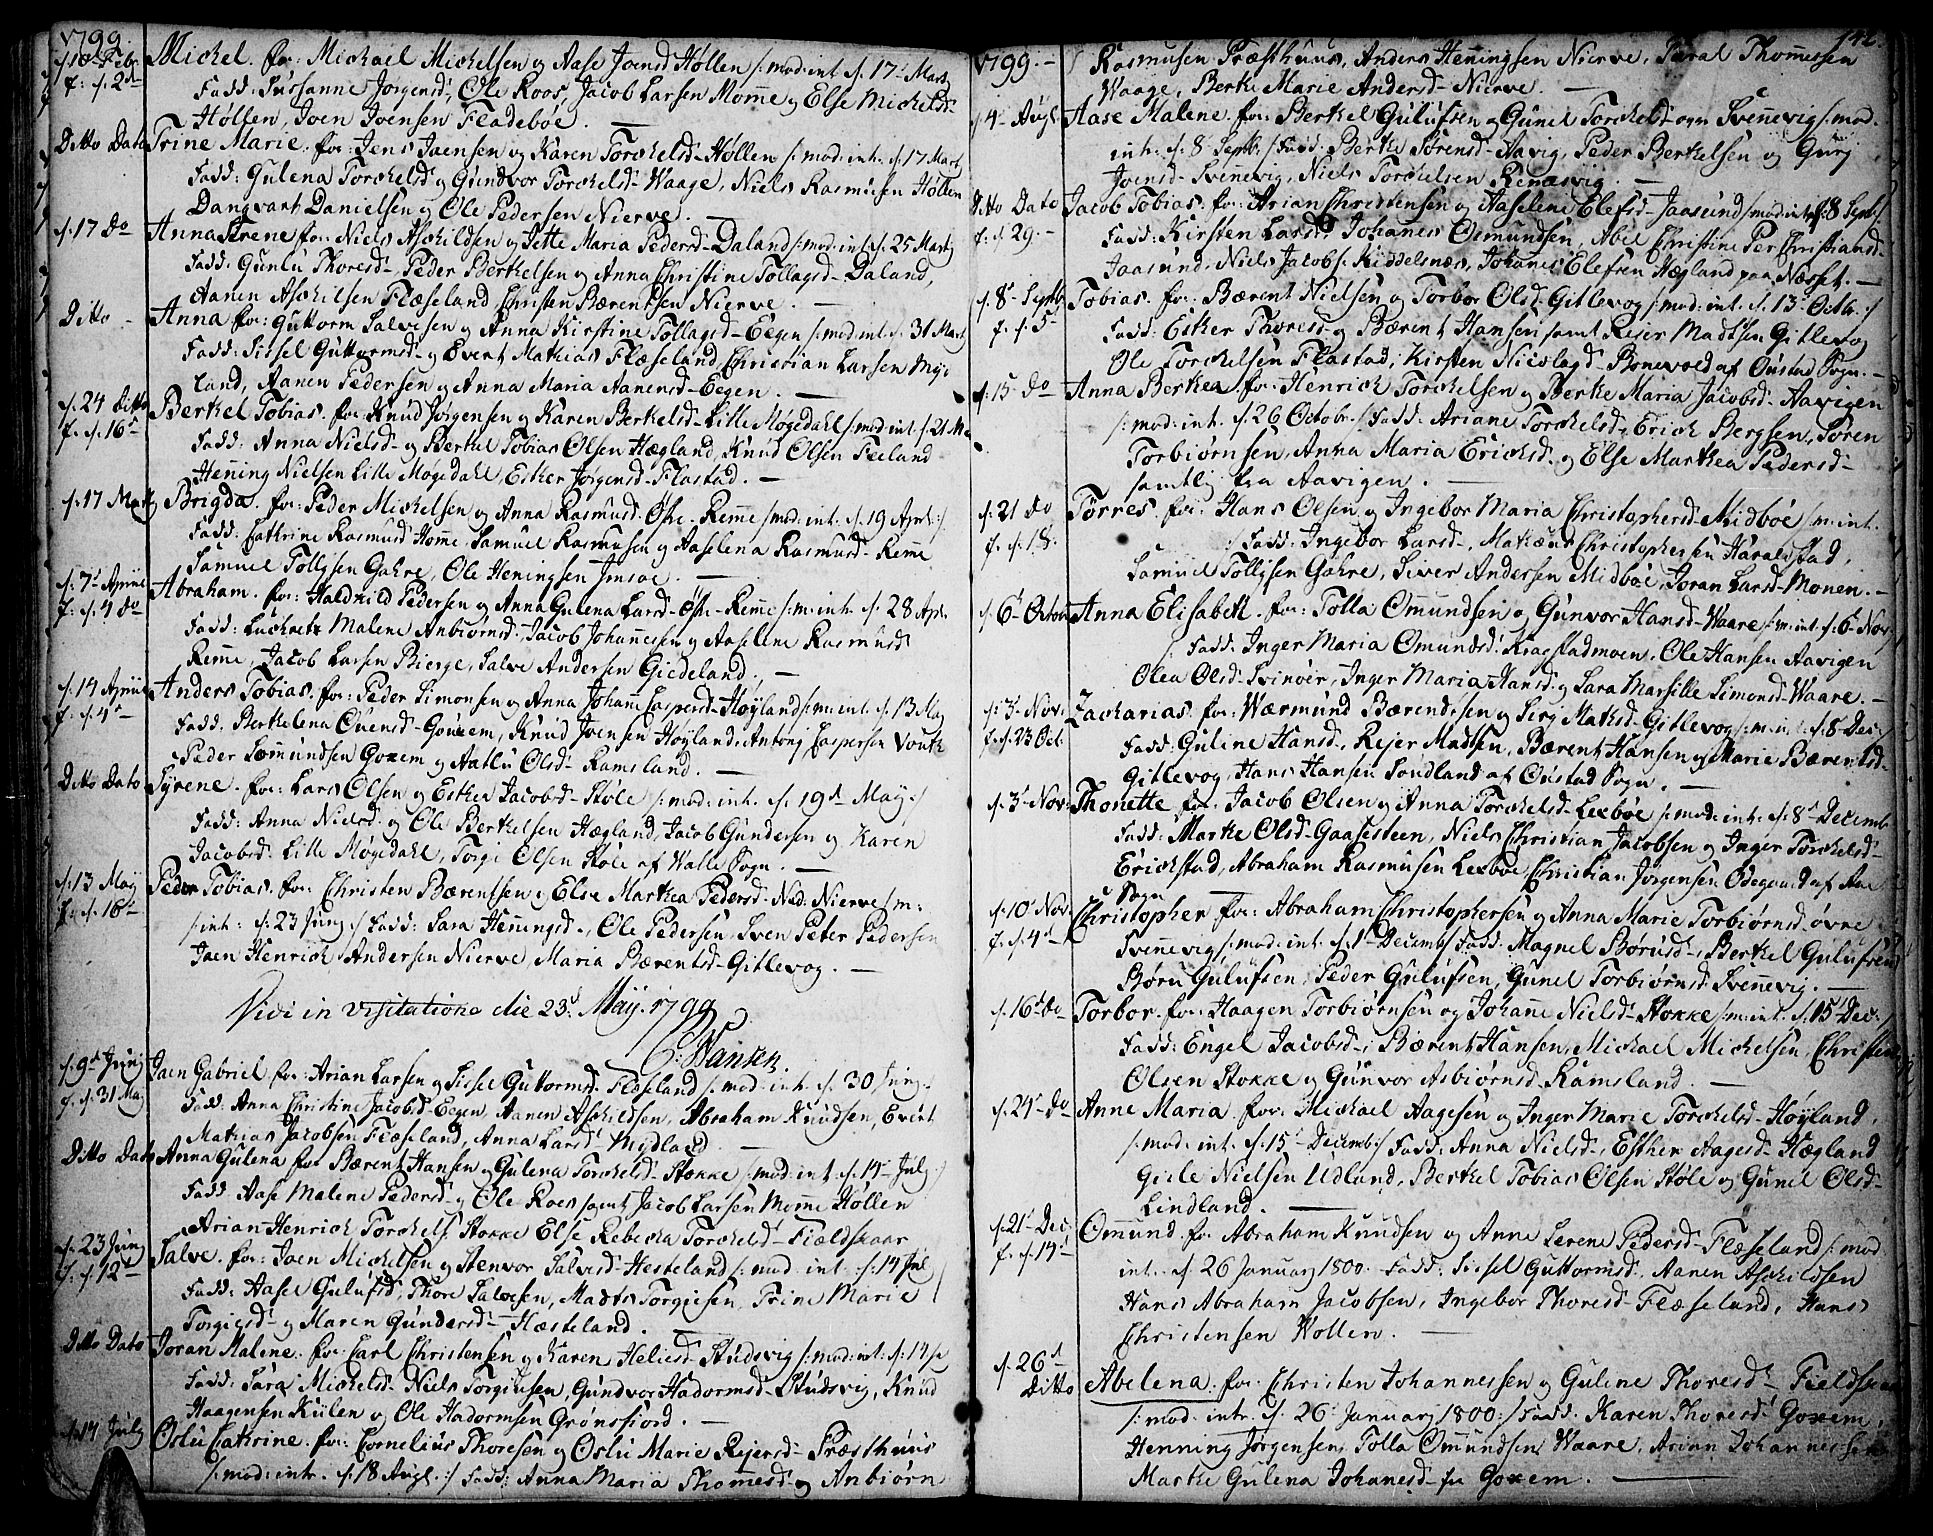 1799.
d. 10 Febr. Michel. for: Michael Michelsen og Aase Joensd Høllen /: mod: int. d. 17 Marti
f: d. 2d
Fadd: Sussanne Jørgensd, Ole Roos, Jacob Larsen Momme og Else Michelsd
Høllen, Joen Joensen Fladebøe. —
Ditto Dato Trine Marie. for: Jens Jaensen og Karen Torckelsd Høllen /: mod: int. d. 17 Marti
Fadd: Gulena Torckelsd og Gundvor Torckelsd Waage, Niels Rasmusen Høllen
Dangvart Danielsen og Ole Pedersen Nierve. —
d. 17 Do Anna Serene for: Niels Aschildsen og Jette Maria Pedersd Daland /: mod: int. d. 25 Martj
Fadd: Gunlu Thoresd, Peder Berthelsen og Anna Christine Tollagsd Daland,
Aanen Aschilsen Flæseland, Christen Bærentsen Nierve. —
Ditto — Anna for: Guttorm Salvesen og Anna Kirstine Tollagsd Eegen /: mod: int. d. 31 Martj
Fadd: Sissel Guttormsd og Evert Mathias Flæseland, Christian Larsen Myd
land, Aanen Pedersen og Anna Maria Aanensd Eegen. —
d. 24 Ditto Berthel Tobias. for: Knud Jørgensen og Karen Berthelsd Lille Møgedahl /: mod: int. d. 21
f. d. 16
Fadd: Anna Nielsd og Berthel Tobias Olsen Hægland, Knud Olsen Feeland
Henning Nielsen Lille Møgedahl, Esther Jørgensd Flastad. —
d. 17 Martj Brigda. for: Peder Michelsen og Anna Rasmusd Øfre Remme /: mod: int. d. 19 April :/
Fadd: Cathrine Rasmusd Homme, Samuel Rasmusen og Aaselena Rasmusd Remme
Samuel Tollisen Gahre, Ole Heningsen Imsae. —
d. 7 Aprili Abraham. for: Haldkild Pedersen og Anna Gulena Larsd Øfre Remme /: m: int. d. 28 Apr.
f: d. 4 do
Fadd: Malene Anbiørnsd, Jacob Johannesen og Aaselene Rasmusd
Remme, Jacob Larsen Bierge, Salve Andersen Giedeland. —
d. 14 Aprili Anders Tobias. for: Peder Simonsen og Anna Johanne Caspersd Høyland /: m: int. d. 13 Maj
f. d. 4
Fadd: Berthelena Evensd Gouxem, Knud Joensen Høyland, Antonj Caspersen
Peder Sommundsen Goxem og Aatlu Olsd Ramsland. —
Ditto Dato Syrene. for: Lars Olsen og Esther Jacobsd Støle /: mod: int. d. 19d May :/
Fadd: Anna Nielsd og Ole Berthelsen Hægland, Jacob Gundersen og Karen
Jacobsd Lille Møgedahl, Torgi Olsen Støle af Walle Sogn. —
d. 13 Maij Peder Tobias. for: Christen Bærentsen og Else Marthea Pedersd Ned: Nierve /: m:
f. d. 16
int: d. 23 Junj :/ Fadd: Sara Henningsd, Ole Pedersen, Sven Peter Pedersen
Jaen Henrich Andersen Nierve, Maria Bærentsd Gitlevog. —
Vidi in visitatione die 23d Maij. 1799
C: Hansen.
d. 9d Junj Jaen Gabriel for: Arian Larsen og Sissel Guttormsd Flæseland /: mod: int. d. 30 Junj.
f. d. 31 Maj
Fadd: Anna Christine Jacobsd Eegen, Aanen Aschildsen, Abraham Knudsen, Evert
Mathias Jacobsen Flæseland, Anna Larsd Mydland —
Ditto Dato Anna Gulena for Bærent Hansen og Gulena Torckelsd Stokke /: mod: int. d. 14 Julj :/
Fadd: Aase Malene Pedersd og Ole Roes samt Jacob Larsen Momme Høllen
Arian Henrich Torckels: Stokke Else Rebecka Torckelsd Fieldskaar
d. 23 Junj Salve. for: Joen Michelsen og Stenvor Salvesd Hesteland /: mod: int: d. 14 Julj
f. d. 12d
Fadd: Aasel Gulufsd, Thore Salvesen, Madts Torgiesen, Trine Marie
Torgiesd og Maren Gundersd Hæsteland. —
Ditto Dato Joran Malene. for: Carl Christensen og Karen Heliesd Studsvig /: mod: int: d. 14
Fadd: Sara Michelsd Niels Torgiusen, Gundvor Hadormsd Studsvig, Knud
Haagensen Kiilen og Ole Hadormsen Grønsfiord. —
d. 14 Julj Oslu Cathrine. for: Cornelius Thoresen og Oslu Marie Rejersd Præsthuus
/: mod: intr. d. 18 Augl. :/ Fadd: Anna Maria Thomesd og Anbiørn
142.
1799. — Rasmusen Præsthuus, Anders Henningsen Nierve, Saral Thomessen
Waage, Berthe Marie Andersd Nierve. —
d. 4 Augl. Aase Malene. for: Berthel Gulufsen og Gunel Torckelsd Svennevig /: mod.
int: d. 8 Septb: / Fadd: Berthe Sørensd Aavig, Peder Berthelsen og Gurj
Joensd Svennevig, Niels Torckelsen Renæsvig —
Ditto Dato Jacob Tobias. for: Arian Christensen og Aaselene Elefsd Jaasund /: mod: int. d. 8 Sept.
f: d. 29. —
Fadd: Kirsten Larsd, Johanes Osmundsen, Abel Christine Per Christiansd
Jaasund, Niels Jacobs: Kiddelsnæs, Johanes Elefsen Hægland paa Næset. —
d. 8 Septb: Tobias. for: Bærent Nielsen og Torbor Olsd Gitlevog /: mod: int. d. 13 Octb: :/
f: d. 5
Fadd: Esther Thoresd og Bærent Hansen samt Reier Madtsen Gitlevog
Ole Torckelsen Flastad, Kirsten Nicolagd Bonevold af Oustad Sogn. —
d. 15 do Anna Berthea for: Henrich Torckelsen og Berthe Maria Jacobsd Aavigen
/: mod: int. d. 26 Octobr. :/ Fadd: Ariane Torckelsd, Erich Bergsen, Søren
Torbiørnsen, Anna Maria Erichsd og Else Marthea Pedersd
samtlig fra Aavigen. —
d. 21 do Torres. for: Hans Olsen og Ingebor Maria Christophersd Midbøe /: m: int.
f. d. 18.
Fadd: Ingebor Larsd, Mathæus Christophersen Haraldstad,
Samuel Tollisen Gahre, Siver Andersen Midbøe, Joran Larsd Monen. —
d. 6 Octobr Anna Elisabeth. for: Tolla Ommundsen og Gunvor Hansd Waare /: m. int. d. 6 Nov:
/: Fadd: Inger Maria Omundsd Kragstadmoen, Ole Hansen Aavigen
Olea Olsd Svinøer, Inger Maria Hansd og Sara Marsille Simonsd Waare. —
d. 3 Nov: Zacharias. for: Wærmund Bærendsen og Serj Mathsd Gitlevog /: m: int. d. 8 Dec: /
f: d. 23 Oct:
Fadd: Guline Hansd, Rejer Madtsen, Bærent Hansen og Marie Bærentsd
Gitlevog, Hans Hansen Sondland af Oustad Sogn. —
d. 3 Nov: Thonette for. Jacob Olsen og Anna Torckelsd Lexbøe /: mod: int: d. 8 Decemb
Fadd: Marthe Olsd Gaasesteen, Niels Christian Jacobsen og Inger Torckelsd
Erichstad, Abraham Rasmussen Lexbøe, Christian Jørgensen Ødegaard af
Sogn —
d. 10 Nov: Christopher for: Abraham Christophersen og Anna Marie Torbiørnsd øvre
f. d. 4d
Svennevig /: mod: int. d. 1 Decemb / Fadd: Magnel Børusd, Berthel Gulufsen
Børu Gulufsen, Peder Gulufsen, Gunel Torbiørnsd Svennevig. —
d. 16 do Torbor. for: Haagen Torbiørnsen og Johanne Nielsd Stokke /: m: int. d. 15 Dec:
Fadd: Engel Jacobsd, Bærent Hansen, Michael Michelsen, Christen
Olsen Stokke og Gunvor Asbiørnsd Ramsland. —
d. 24 do Anne Maria. for: Michael Aagesen og Inger Marie Torckelsd Høyland.
/: mod: int. d. 15 Decemb :/ Fadd: Anna Nielsd, Esther Aagesd Hægland
Giele Nielsen Udland, Berthel Tobias Olsen Støle og Gunel Olsd
Lindland. —
d. 21 Dec. Ommund for Abraham Knudsen og Anne Serene Pedersd Flæseland /: mod:
f. d. 14d
int. d. 26 Januarj 1800. Fadd: Sissel Guttormsd, Aanen Aschildsen
Hans Abraham Jacobsen, Ingebor Thoresd Flæseland, Hans
Christensen Hollen. —
d. 26d Ditto Abelena. for: Christen Johannessen og Guline Thoresd Fieldskaar
/: mod: intr. d. 26 Januarj 1800 :/ Fadd. Karen Thoresd Goxem,
Henning Jørgensen, Tolla Omundsen Waare, Arian Johannessen
Marthe Gulena Johanesd fra Goxem. —